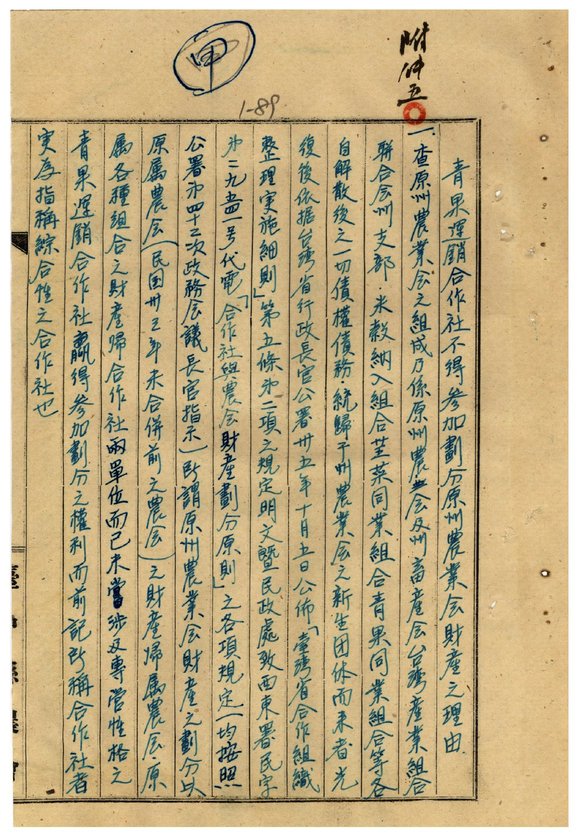 附件五
甲
1-89
青果運銷合作社不得參加劃分原州農業会財產之理由
一查原州農業会之組成乃係原州農会及州畜産会台湾產業組合
聯合会州支部·米穀納入組合荎葉同業組合青果同業組合等各
自解散後之一切債權債務·統歸于州農業会之新生团体而来者光
復後依据台湾省行政長官公署卅五年十月五日公佈「臺湾省合作組織
整理实施細則」第五條㐧二項之規定明文暨民政處致酉東署民字
㐧二九五四一号代電「合作社與農会財產劃分原則」之各項規定一均按照
公署㐧四十三次政務会議長官指示）所謂原州農業会財產之劃分以
原属農会（民国卅三年未合併前之農会）之財產歸属農会·原
属各種組合之財產歸合作社兩單位而已未嘗涉及專营性格之
青果運銷合作社贏得参加劃分之權利而前記所稱合作社者
实為指稱綜合性之合作社也